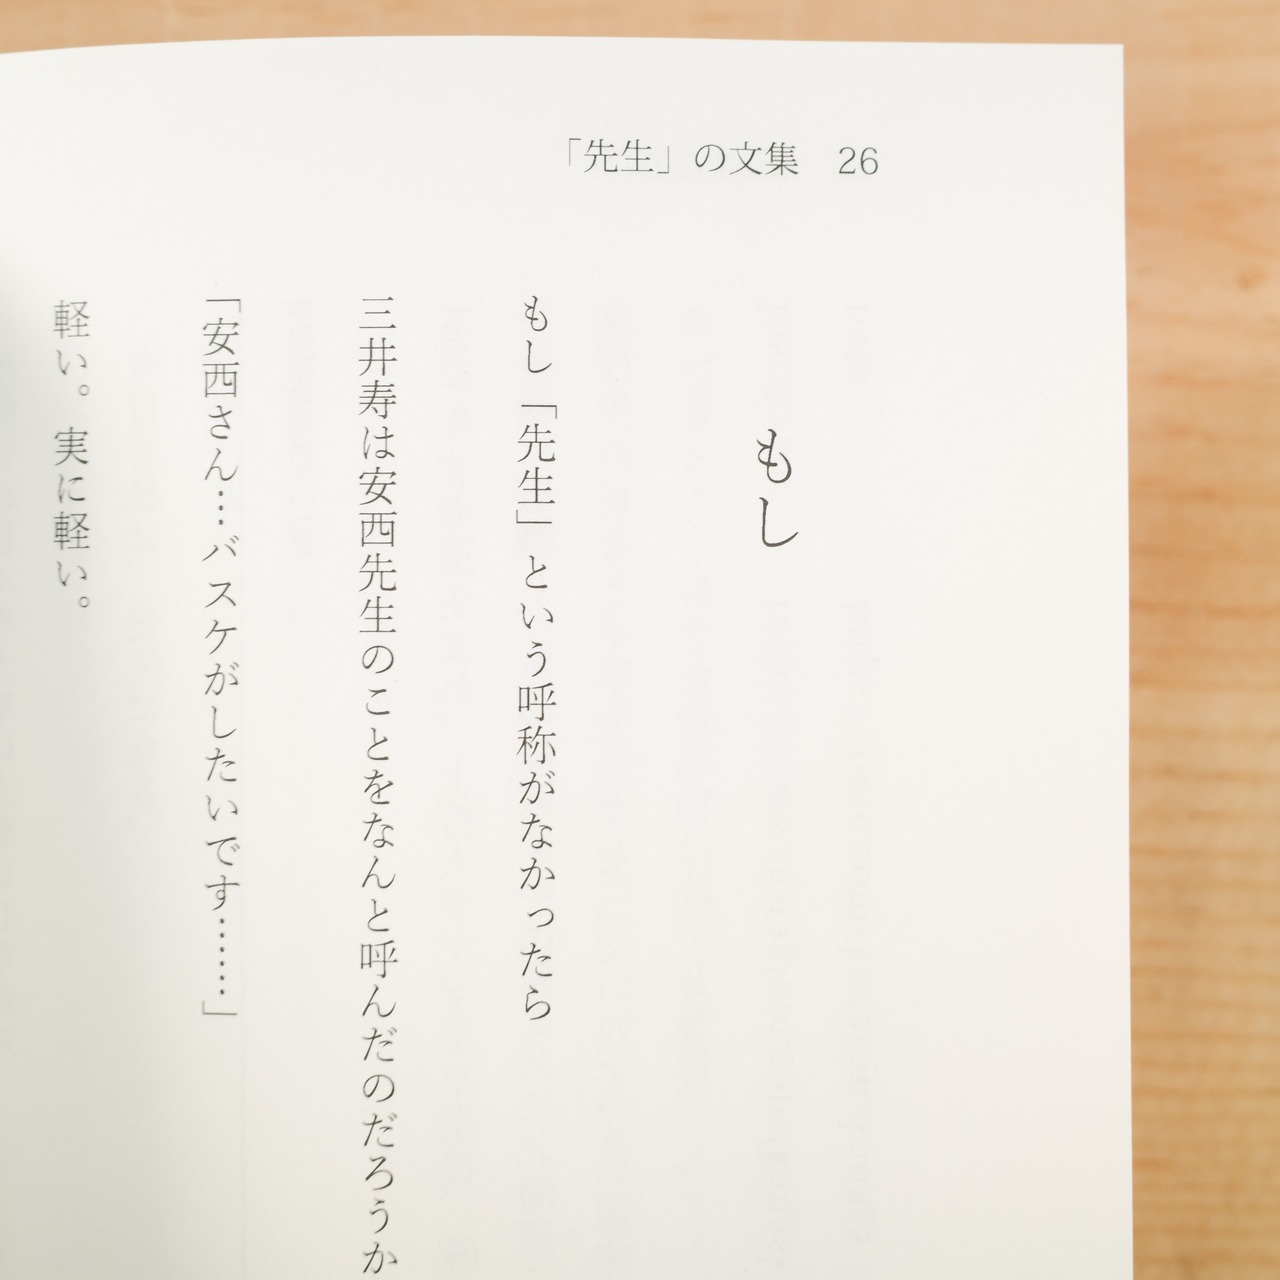 「先生」の文集　26
もし
もし「先生」という呼称がなかったら
三井寿は安西先生のことをなんと呼んだのだろうか
「安西さん…バスケがしたいです……」
軽い。実に軽い。